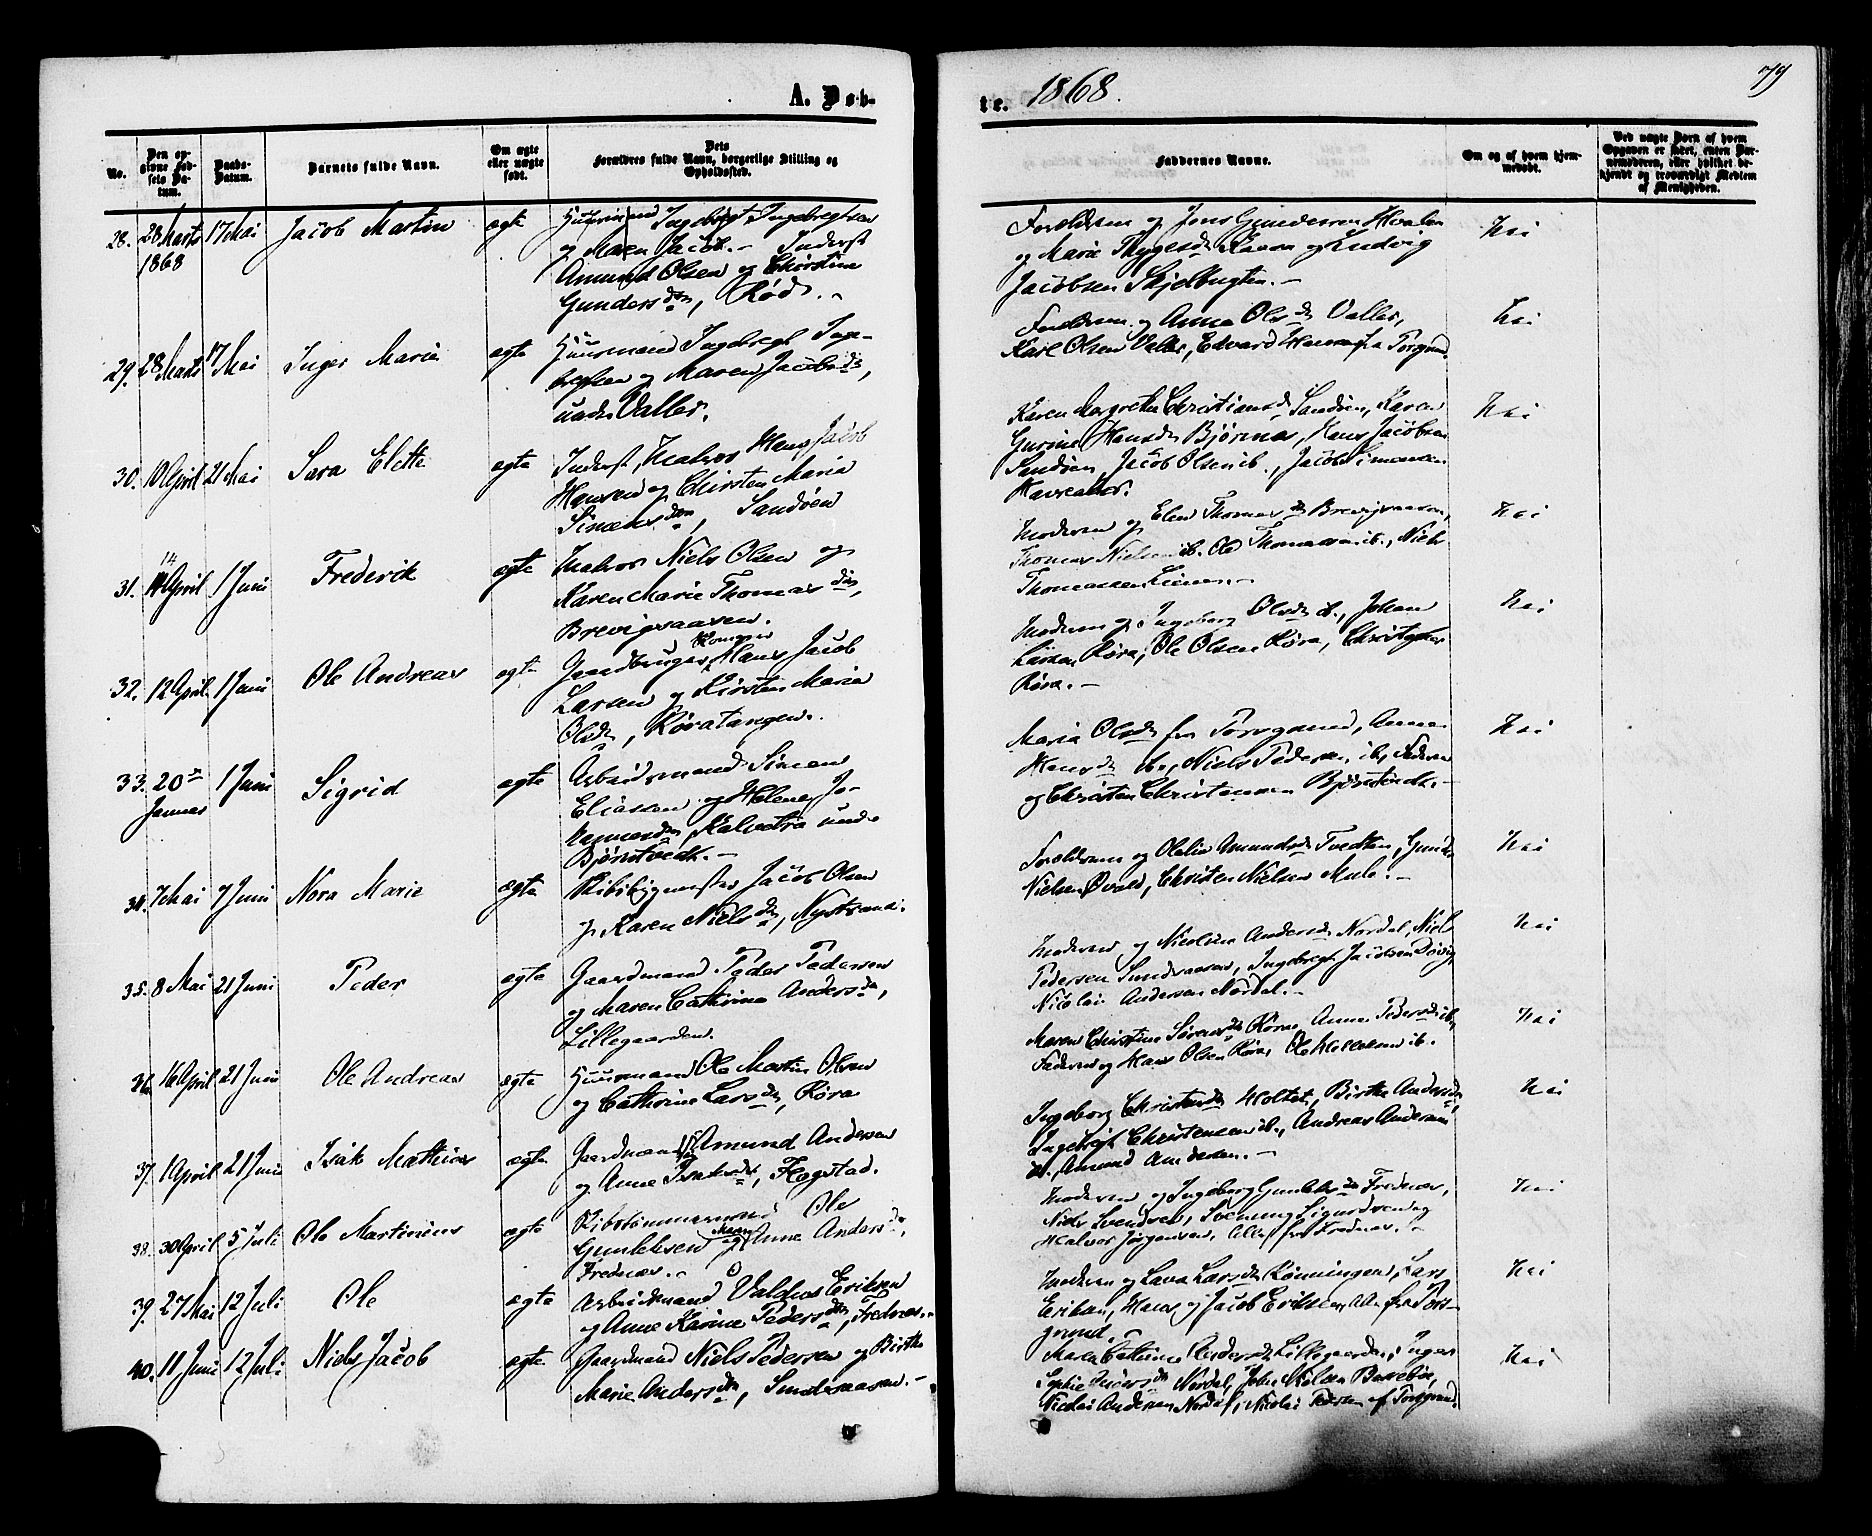 A. Døb-
te. 1868.
79
No.
Den op-
givne Fød-
sels Da-
tum.
Daabs-
Datum.
Barnets fulde Navn.
Om ægte
eller uægte
født.
Dets
Forældres fulde Navn, borgerlige Stilling og
Opholdssted.
Faddernes Navne.
Om og af hvem hjem-
medøbt.
Ved uægte Børn af hvem
Opgaven er skeet, enten Bar-
nemoderen, eller hvilket be-
kjendt og troværdigt Medlem
af Menigheden.
28. 28 Marts 17 Mai Jacob Martin ægte
1868
Inderst
Amund Olsen og Chirstine
Gundersdtr, Rød. -
Forældrene og Jens Gundersen
og Marie Thygesdtr og Ludvig
Jacobsen Skjelbugten. -
Nei
29. 28 Marts 17 Mai Inger Marie ægte
Huusmand Ingebregt Inge-
bregtsen og Maren Jacobsdtr,
Valler.
Forældrene og Anne Olsdtr Valler,
Karl Olsen Valler, Edvard Hansen fra Porsgrund.
Nei
30. 10 April 21 Mai Sara Elette ægte
Inderst, Matros Hans Jacob
Hansen og Chirsten Maria
Simensdtr, Sandøen
Karen Margrethe Christiansdtr Sandøen, Karen
Gurine Hansdtr Bjørnnes, Hans Jacobsen
Sandøen, Jacob Olsen ib., Jacob Simonsen
Nei
31. 14 April 1 Juni Frederik ægte
14
Matros Niels Olsen og
Karen Marie Thomasdtr,
Brevigsaasen.
Moderen og Elen Thomasdtr Brevigsaasen,
Thomas Nielsen ib. Ole Thomassen ib., Niels
Thomassen
Nei
32. 12 April 1 Juni Ole Andreas ægte
Gaardbruger Hans Jacob
Larsen og Kirsten Maria
Olsdtr, Røratangen.
Moderen og Ingeborg Olsdtr ib., Johan
Larsen Røra, Ole Olsen Røra, Christopher
Røra. -
Nei
33. 20de 1 Juni Sigrid ægte
Januar
Arbeidsmand Simen
Eliassen og Helene Jo-
hannesdtr, Kalvetra under
Bjørntvedt. -
Maria Olsdtr fra Porsgrund, Anne
Hansdtr ib., Niels Pedersen ib., Faderen
og Christen Christensen Bjørntvedt. -
Nei
34. 7 Mai 7 Juni Nora Marie ægte
Skibsbygmester Jacob Olsen
og Karen Nielsdtr, Nystrand.
Forældrene og Olelia Amundsdtr Tvedten,
Nielsen Ørvald, Christen Nielsen Mule. -
Nei
35. 8 Mai 21 Juni Peder ægte
Gaardmand Peder Pedersen
og Maren Cathrine Andersdtr,
Lillegaarden.
Moderen og Nicoline Andersdtr Nordal, Niels
Pedersen Sundsaasen, Ingebregt Jacobsen Døvig,
Nicolai Andersen Nordal. -
Nei
36. 16 April 21 Juni Ole Andreas ægte
Huusmand Ole Martin Olsen
og Cathrine Larsdtr, Røra
Maren Christine Sørensdtr Røra, Anne Pedersdtr ib.
Faderen og Hans Olsen Røra, Ole ib.
Nei
37. 1 April 21 Juni Isak Mathias ægte
Gaardmand Amund Andersen
og Anne Isaksdtr, Flogstad.
Ingeborg Christensdtr Holtet, Birthe Andersdtr,
Ingebregt Christensen ib., Andreas Andersen
ib., Amund Andersen. -
Nei
38. 30 April 5 Juli Ole Martinius ægte
Skibstømmermand Ole
Gunleksen og Anne Andersdtr,
Frednes. -
Moderen og Ingeborg Gunleksdtr Frednes,
Niels Svendsen, Svenung Sigurdsen og
Halvor Jørgensen, alle fra Frednes. -
Nei
39. 27 Mai 12 Juli Ole ægte
Arbeidsmand Valdus Eriksen
og Anne Karine Pedersdtr, Frednes. -
Moderen og Lava Larsdtr Rønningen, Lars
Eriksen, Hans og Jacob Eriksen, alle fra Pors-
grund. -
Nei
40. 11 Juni 12 Juli Niels Jacob ægte
Gaardmand Niels Pedersen og Birthe
Marie Andersdtr, Sundsaasen. -
Maren Cathrine Andersdtr Lillegaarden, Inger
Sophie Andersdtr Nordal, John Nielsen Bassebøe,
Nicolai Andersen Nordal, Nicolai Pedersen af Porsgrund.
Nei